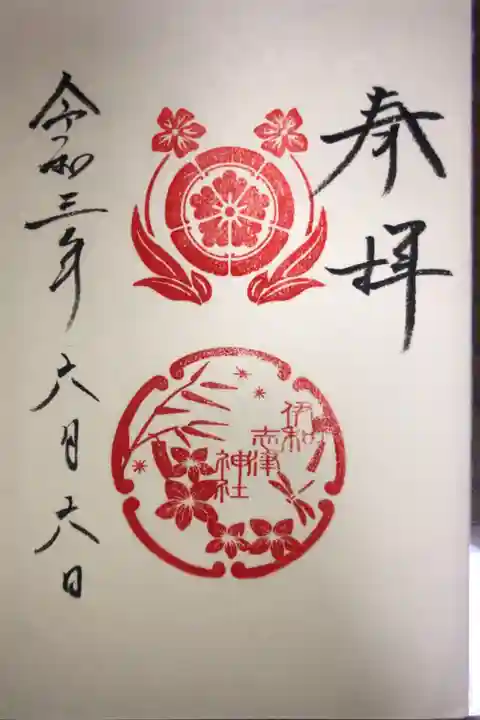 奉拝
伊和
志津
神社
令和三年六月六日